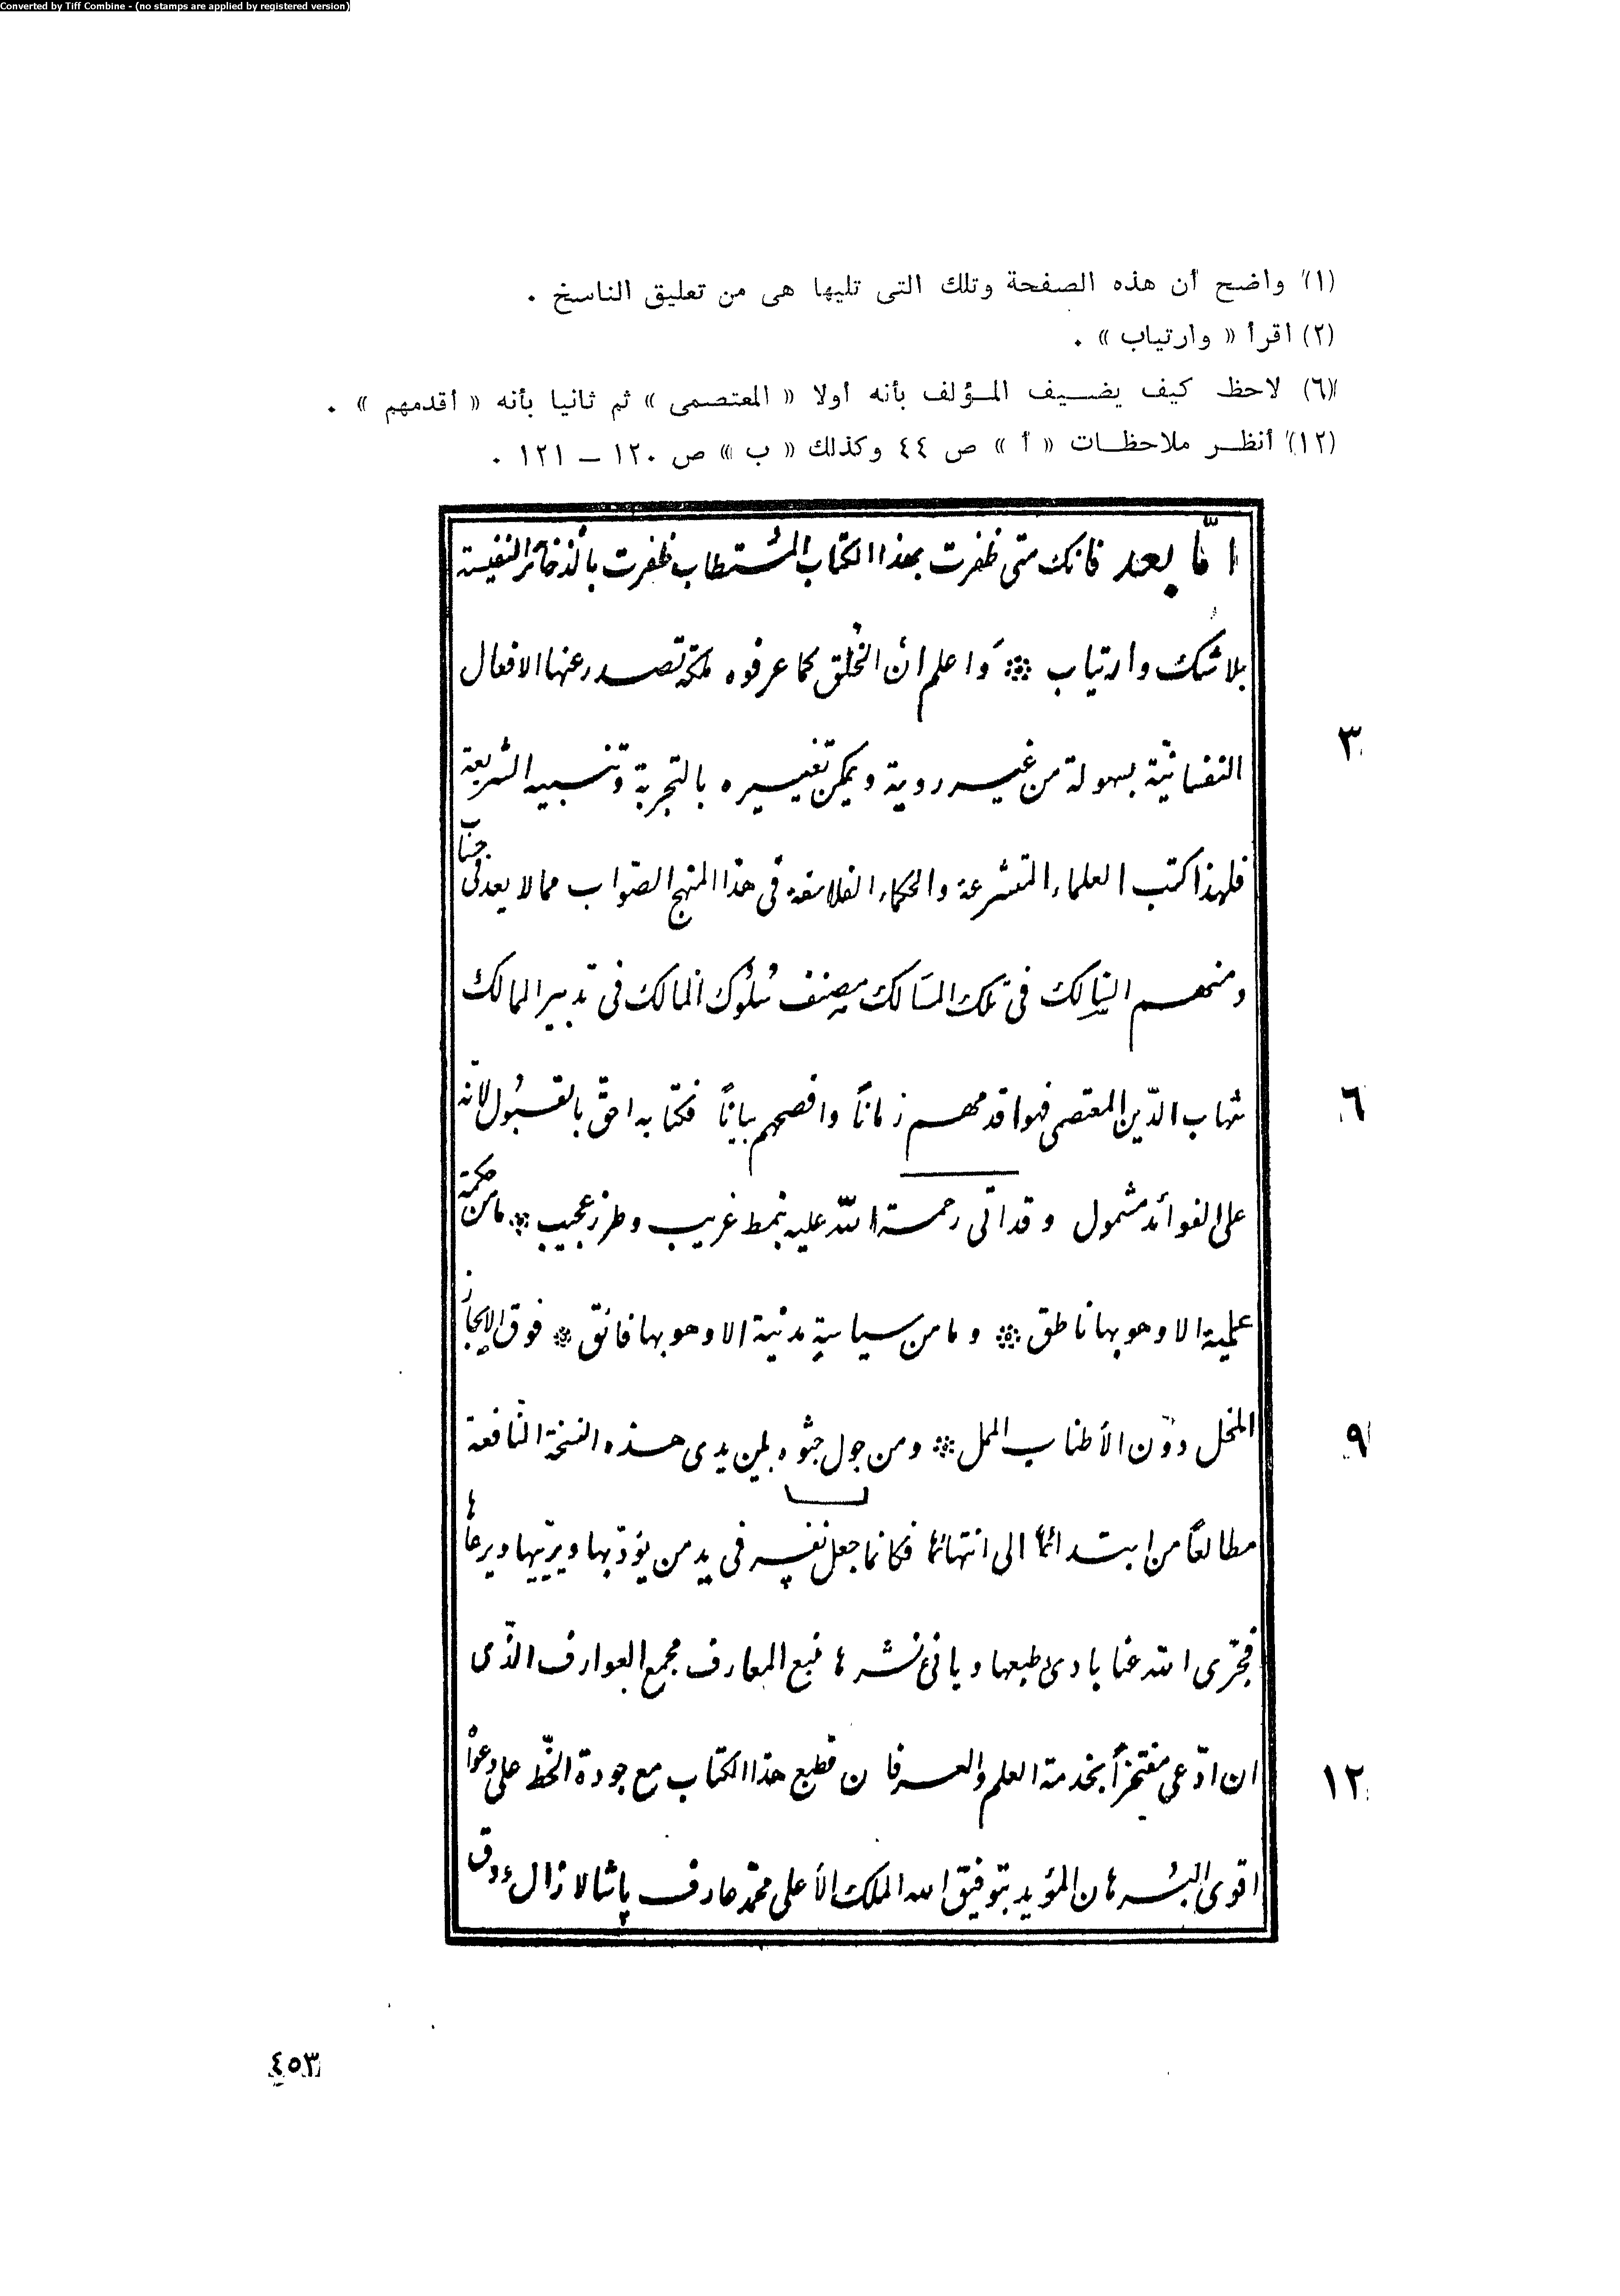 Converted by Tiff Combine - (no stamps are applied by registered version)
(١) واضح أن هذه الصفحة وتلك التى تليها هى من تعليق الناسخ .
(٢) اقرأ « وارتياب » .
(٦) لاحظ كيف يضيف المؤلف بأنه أولا « المعتصمى » ثم ثانيا بأنه « أقدمهم » .
(١٢) أنظر ملاحظات « أ » ص ٤٤ وكذلك « ب » ص ١٢٠ – ١٢١ .
امّا بعد فانك متى ظفرت بهذا الكتاب المستطاب ظفرت بالذخائر النفيسة
بلا شك وارتياب ❊ واعلم انّ الخُلق كما عرفوه ملكة تصدر عنها الافعال
٣
النفسانية بسهولة من غير روية ويمكن تغييره بالتجربة وتنبيه الشريعة
فلهذا كتب العلماء المتشرعة والحكماء الفلاسفة فى هذا المنهج الصّواب مما لا يعد
ومنهم السالك فى تلك المسالك مصنف سُلُوك المالك فى تدبير الممالك
شهاب الدّين المعتصمى فهو اقدمهم زماناً وافصحهم بياناً فكتابه احقّ بالقبُول لانّه
٦
على الفوائد مشمول وقد اتى رحمة اللّه عليه بنمط غريب وطرز عجيب ❊ ما من حكمة
عملية الا وهو بها ناطق ❊ وما من سياسة مدنية الا وهو بها فائق ❊ فوق الايجاز
المخل دون الأطناب الممل ❊ ومن جول بين يدى هذه النسخة النّافعة
٩
مطالعاً من ابتدائها الى انتهائها فكانما جعل نفسه فى يد من يؤدّبها ويربّيها ويرعاها
فجزى اللّه عنا بادئ طبعها وبانئ نشرها منبع المعارف مجمع العوارف الذّى
ان ادّعى مفتخراً بخدمة العلم والعرفان فطبع هذا الكتاب مع جودة الخّط على دعواه
١٢
اقوى البرهان المؤيد بتوفيق الله الملك الأعلى محمّد عارف پاشا لا زال
٤٥٣